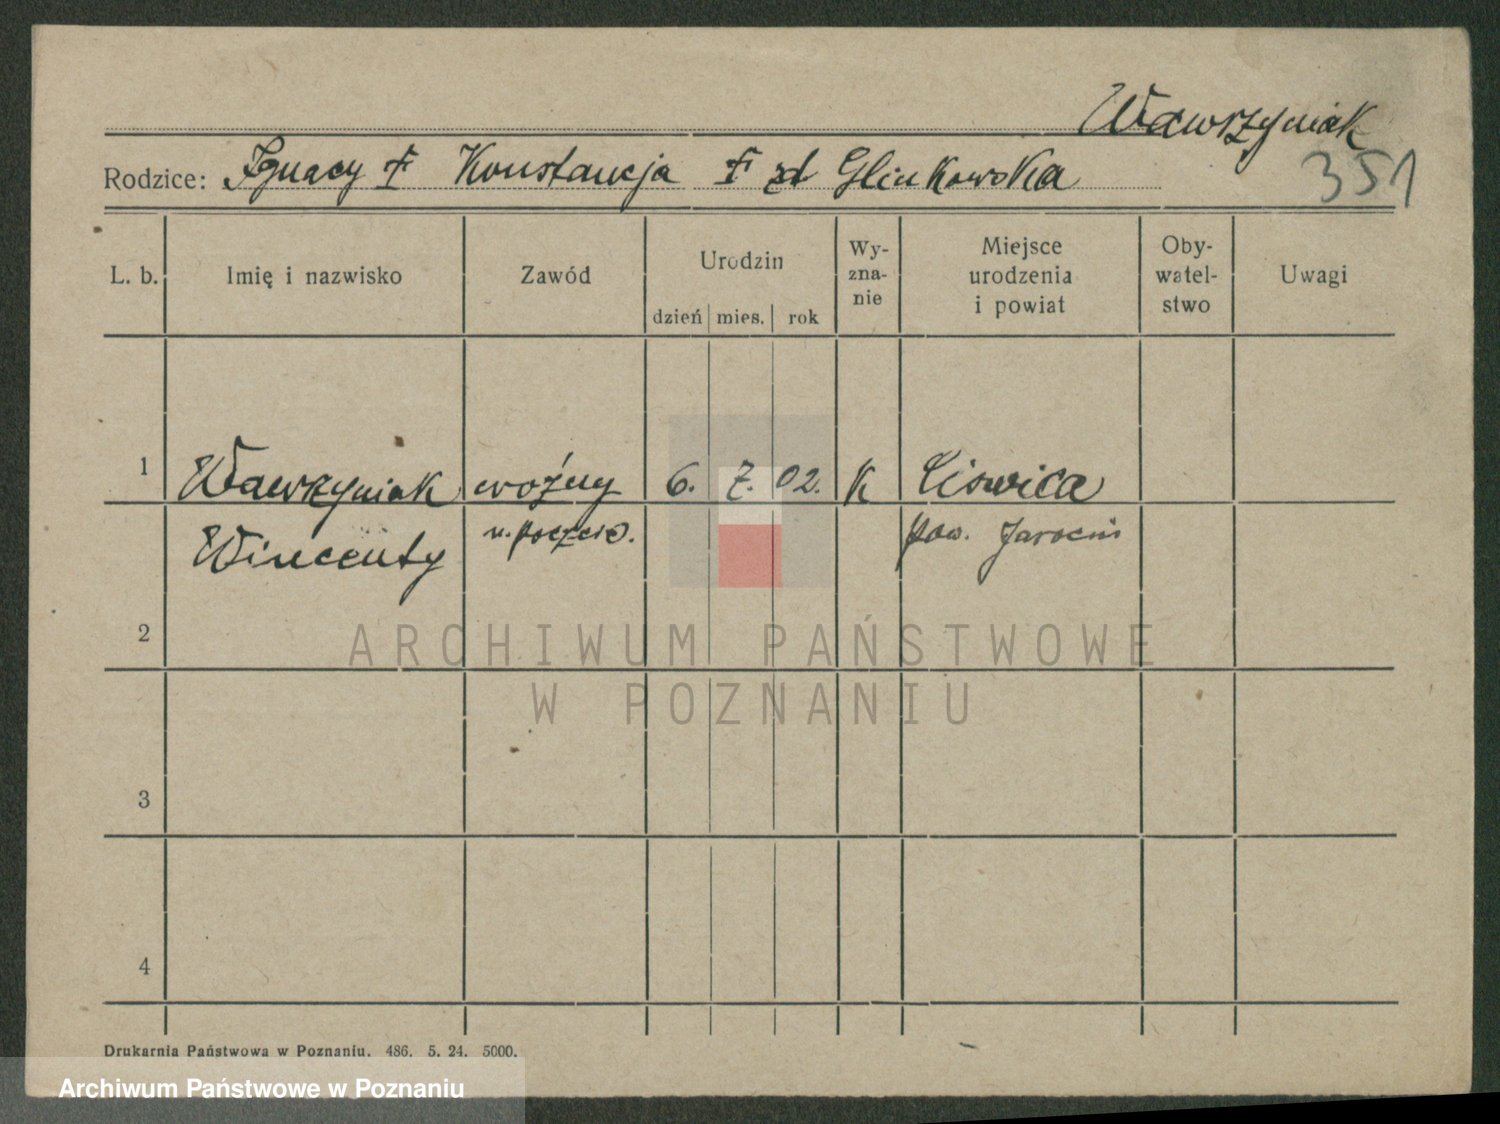 Wawrzyniak
Rodzice: Ignacy † Konstancja † zd Glinkowska
351
L. b. Imię i nazwisko Zawód Urodzin Wy-zna-nie Miejsce urodzenia i powiat Oby-watel-stwo Uwagi
dzień mies. rok
1 Wawrzyniak woźny 6. 7. 02. K Ciswica
Wincenty n. poczcie. pow. Jarocin
2
ARCHIWUM PAŃSTWOWE
W POZNANIU
3
4
Drukarnia Państwowa w Poznaniu. 486. 5. 24. 5000.
Archiwum Państwowe w Poznaniu